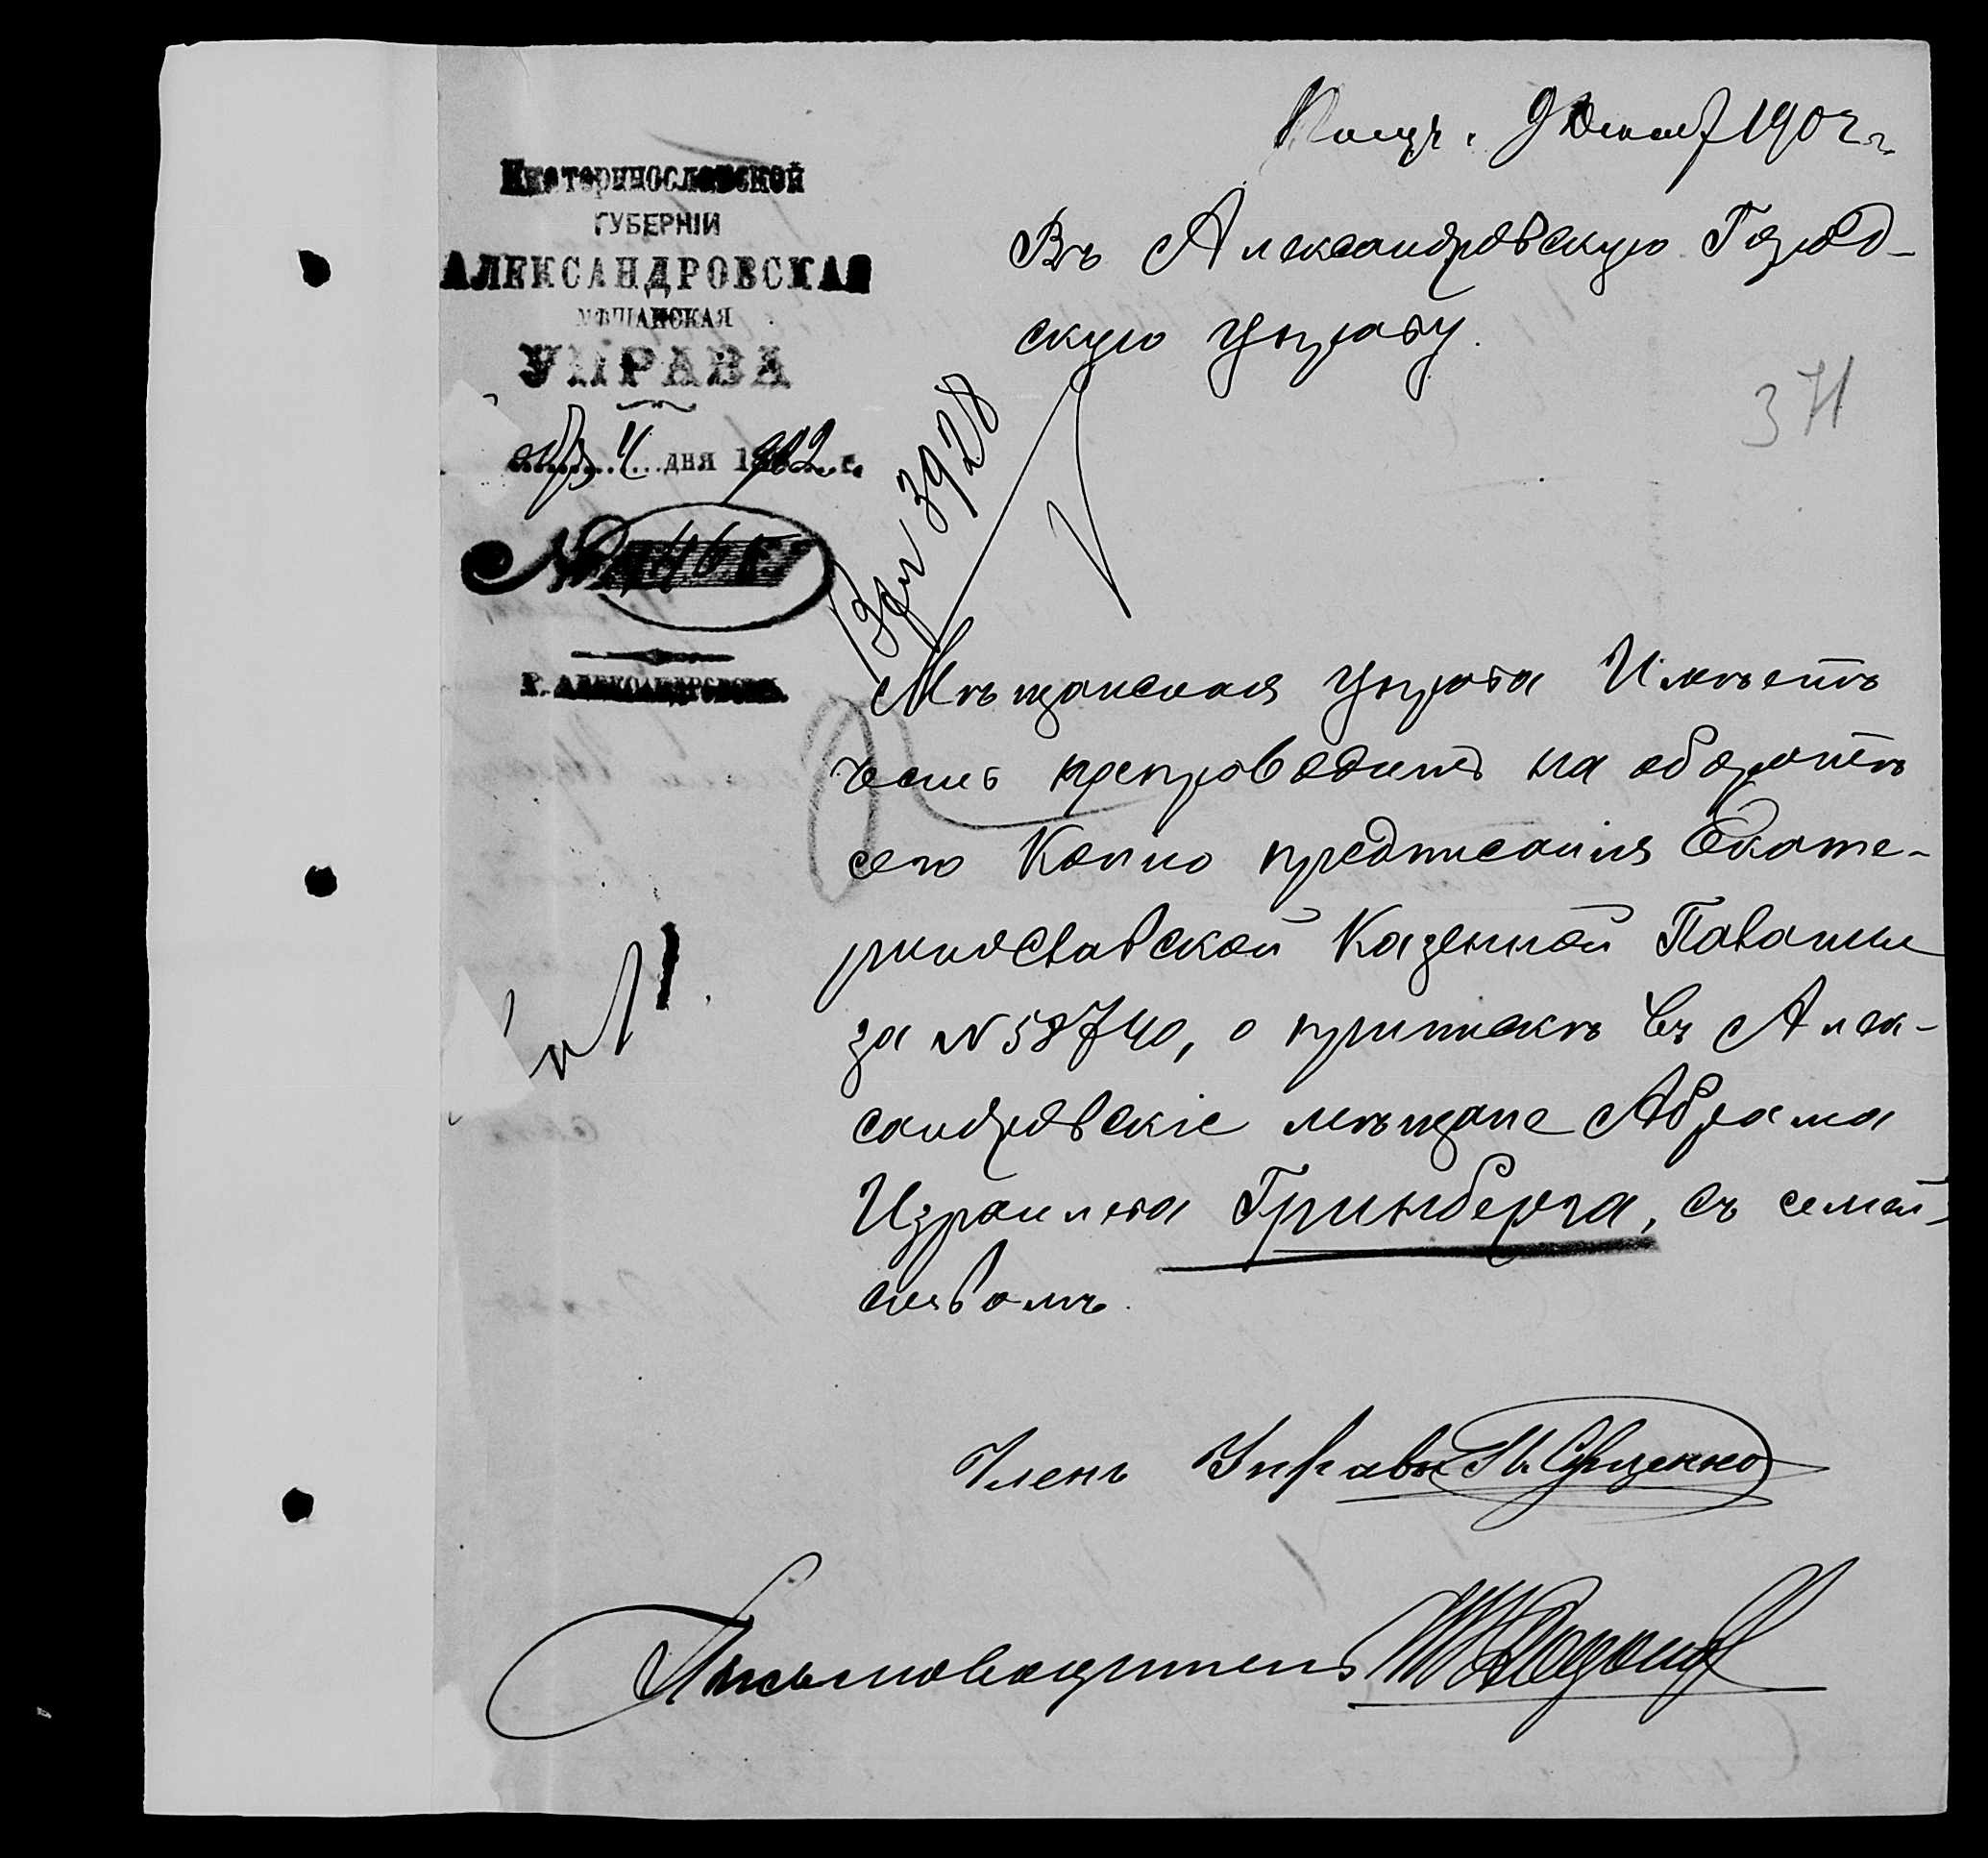 Получ. 9 Декаб 1902 г.
Екатеринославской
ГУБЕРНІИ
АЛЕКСАНДРОВСКАЯ
МѢЩАНСКАЯ
УПРАВА
4 дня 1902 г.
№
Г. АЛЕКСАНДРОВСКЪ
Въ Александровскую Город-
скую Управу.
371
Вх № 3928
Мѣщанская Управа Имѣетъ
честь препроводить на оборотѣ
сего Копію предписанія Екате-
ринославской Казенной Палаты
за № 58740, о припискѣ въ Алек-
сандровскіе мѣщане Абрама
Израилева Гринберга, съ семей-
ствомъ.
Членъ Управы
Письмоводитель